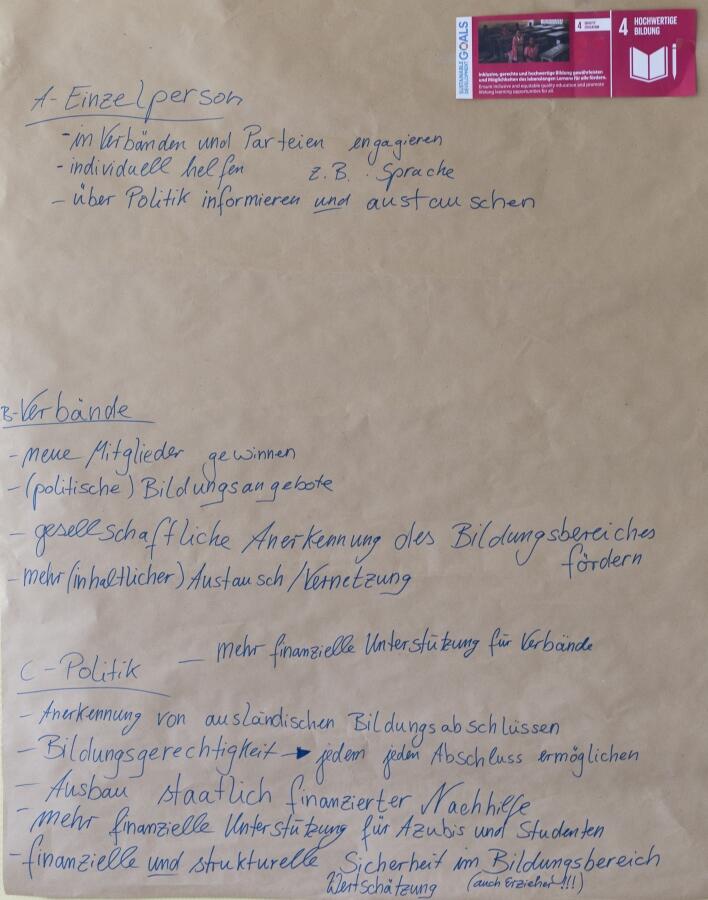 SUSTAINABLE DEVELOPMENT GOALS
4 QUALITY EDUCATION
4 HOCHWERTIGE BILDUNG
Inklusive, gerechte und hochwertige Bildung gewährleisten
und Möglichkeiten des lebenslangen Lernens für alle fördern.
Ensure inclusive and equitable quality education and promote
lifelong learning opportunities for all.
A - Einzelperson
- in Verbänden und Parteien engagieren
- individuell helfen z.B. Sprache
- über Politik informieren und austauschen
B - Verbände
- neue Mitglieder gewinnen
- (politische) Bildungsangebote
- gesellschaftliche Anerkennung des Bildungsbereiches
fördern
- mehr (inhaltlicher) Austausch / Vernetzung
C - Politik
- mehr finanzielle Unterstützung für Verbände
- Anerkennung von ausländischen Bildungsabschlüssen
- Bildungsgerechtigkeit → jedem jeden Abschluss ermöglichen
- Ausbau staatlich finanzierter Nachhilfe
- mehr finanzielle Unterstützung für Azubis und Studenten
- finanzielle und strukturelle Sicherheit im Bildungsbereich
Wertschätzung (auch Erzieher!!!)